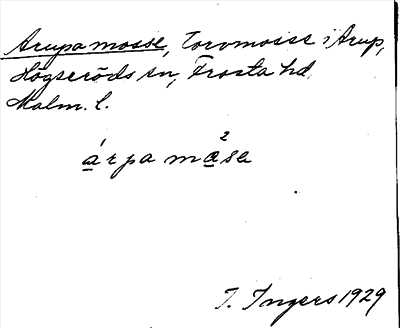 Arupa mosse, Torvmosse i Arup,
Högseröds sn, Frosta hd,
Malm. l.
á̱rpa mα̱²sa
I. Ingers 1929